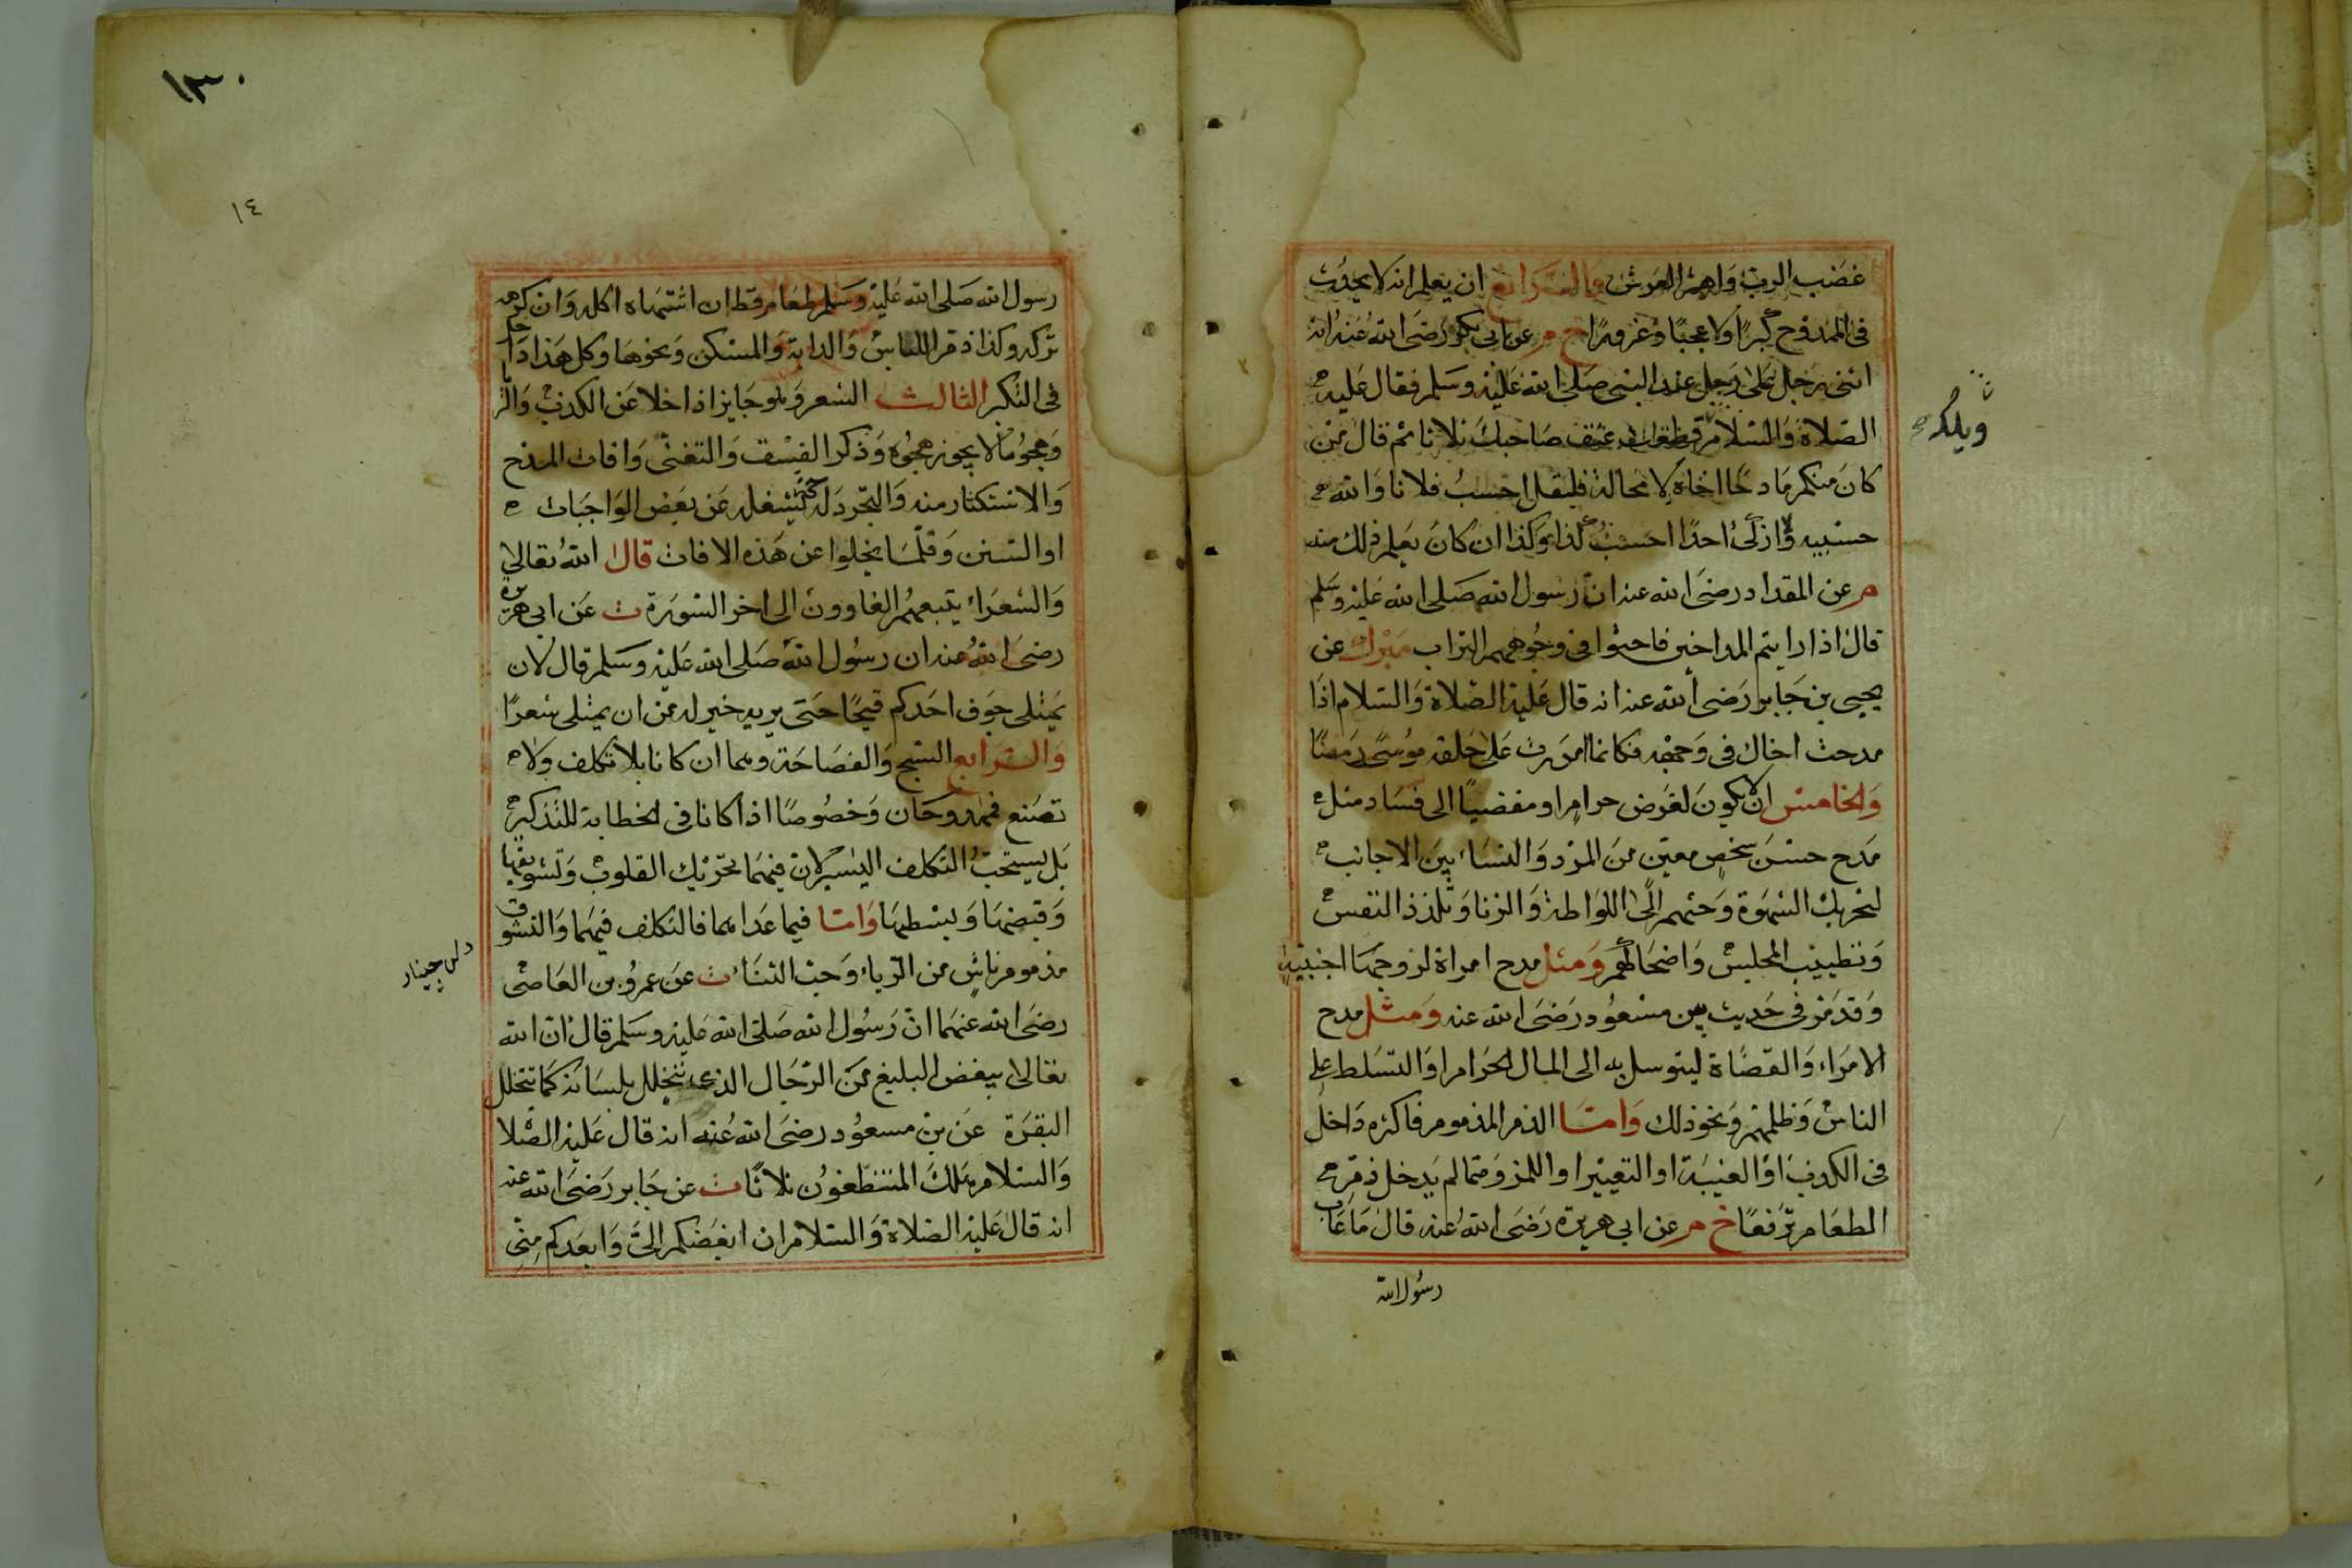 غضب الرب واهتز العرش والرابع ان يعلم انه لا يحدث
فى الممدوح كبرًا ولا عجبًا وغرورًا خ م عن ابى بكر رضى الله عنه انه
اثنى رجل على رجل عند النبى صلى الله عليه وسلم فقال عليه
ويلك
الصلاة والسلام قطعت عنق صاحبك ثلاثا ثم قال من
كان منكم مادحًا اخاه لا محالة فليقل احسب فلانا والله
حسيبه ولا ازكى احدًا احسب كذا وكذا ان كان يعلم ذلك منه
م عن المقداد رضى الله عنه ان رسول الله صلى الله عليه وسلم
قال اذا رايتم المداحين فاحثوا فى وجوههم التراب مبرك عن
يحيى بن جابر رضى الله عنه انه قال عليه الصلاة والسلام اذا
مدحت اخاك فى وجهه فكانما امررت على حلقه موسى رمضًا
والخامس ان لا يكون لغرض حرام او مفضيًا الى فساد مثل
مدح حسن شخص معين من المرد والنساء بين الاجانب
لتحريك الشهوة وحثهم الى اللواطة والزنا وتلذذ النفس
وتطييب المجلس واضحاكهم ومثل مدح امراة لزوجها اجنبية
وقد مر فى حديث بن مسعود رضى الله عنه ومثل مدح
الامراء والقضاة ليتوسل به الى المال الحرام او التسلط على
الناس وظلمهم ونحو ذلك واما الذم المذموم فاكثره داخل
فى الكذب او الغيبة او التعيير او اللمز ومما لم يدخل ذم
الطعام ترفعًا خ م عن ابى هريرة رضى الله عنه قال ما عاب
رسول الله
١٣٠
١٤
رسول الله صلى الله عليه وسلم طعام قط ان اشتهاه اكله وان كرهه
تركه وكذا ذم اللباس والدابة والمسكن ونحوها وكل هذا داخل
فى التكبر الثالث الشعر وهو جايز اذا خلا عن الكذب والريا
وهجو ما لا يجوز هجوه وذكر الفسق والتغنى وافات المدح
والاستكثار منه والتجرد له حتى يشغله عن بعض الواجبات
او السنن وقلما يخلوا عن هذه الافات قال الله تعالى
والشعراء يتبعهم الغاوون الى اخر السورة ت عن ابى هريرة
رضى الله عنه ان رسول الله صلى الله عليه وسلم قال لان
يمتلى جوف احدكم قيحًا حتى يريه خير له من ان يمتلى شعرًا
والرابع السجع والفصاحة وهما ان كانا بلا تكلف ولا
تصنع فممدوحان وخصوصًا اذا كانا فى الخطابة للتذكير
بل يستحب التكلف اليسير لان فيهما تحريك القلوب وتشويقها
وقبضها وبسطها واما فيما عداهما فالتكلف فيهما والتشوق
مذموم ناش من الرياء وحب الثناء ت عن عمرو بن العاص
رضى الله عنهما ان رسول الله صلى الله عليه وسلم قال ان الله
تعالى يبغض البليغ من الرجال الذى يتخلل بلسانه كما تتخلل
البقرة عن بن مسعود رضى الله عنه انه قال عليه الصلا
والسلام هلك المتنطعون ثلاثًا ت عن جابر رضى الله عنه
انه قال عليه الصلاة والسلام ان ابغضكم الى وابعدكم منى